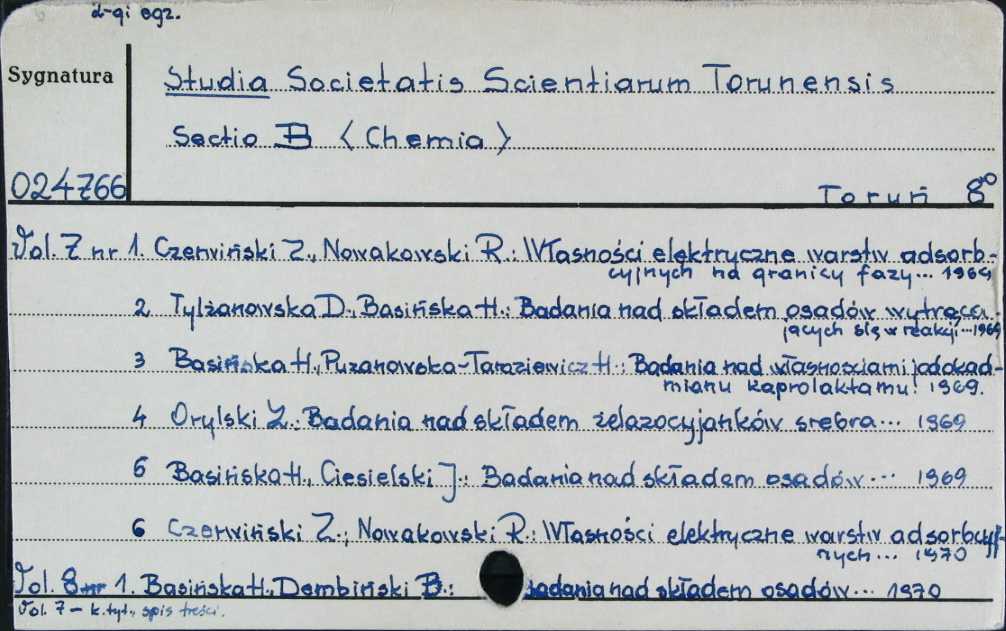 d-gi egz.
Sygnatura
Studia Societatis Scientiarum Torunensis
Sectio B <Chemia>
024766
Toruń 8°
Vol. 7 nr 1. Czerwiński Z., Nowakowski R.: Własności elektryczne warstw adsorb-
cyjnych na granicy fazy... 1969
2 Tylżanowska D., Basińska H.: Badania nad składem osadów wytrąca-
jących się w reakcji...1969
3 Basińska H., Puzanowska-Tarasiewicz H.: Badania nad własnościami jodokad-
mianu kaprolaktamu! 1969.
4 Orylski Z.: Badania nad składem żelazocyjanków srebra... 1969
5 Basińska H., Ciesielski J.: Badania nad składem osadów... 1969
6 Czerwiński Z.; Nowakowski R.: Własności elektryczne warstw adsorbcyj-
nych... 1970
Vol. 8 nr 1. Basińska H., Dembiński B.: Badania nad składem osadów... 1970
Vol. 7 - k.tyt., spis treści.